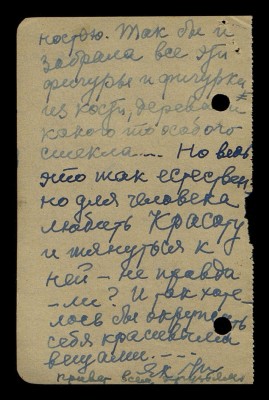 ностью. Так бы и
забрала все эти
фигуры и фигурки
из кости, дерева и
какого то особого
стекла.... Но ведь
это так естествен-
но для человека
любить Красоту
и тянуться к
ней – не правда
– ли? И так хоте-
лось бы окружить
себя красивыми
вещами. – – –
Привет всем друзьям